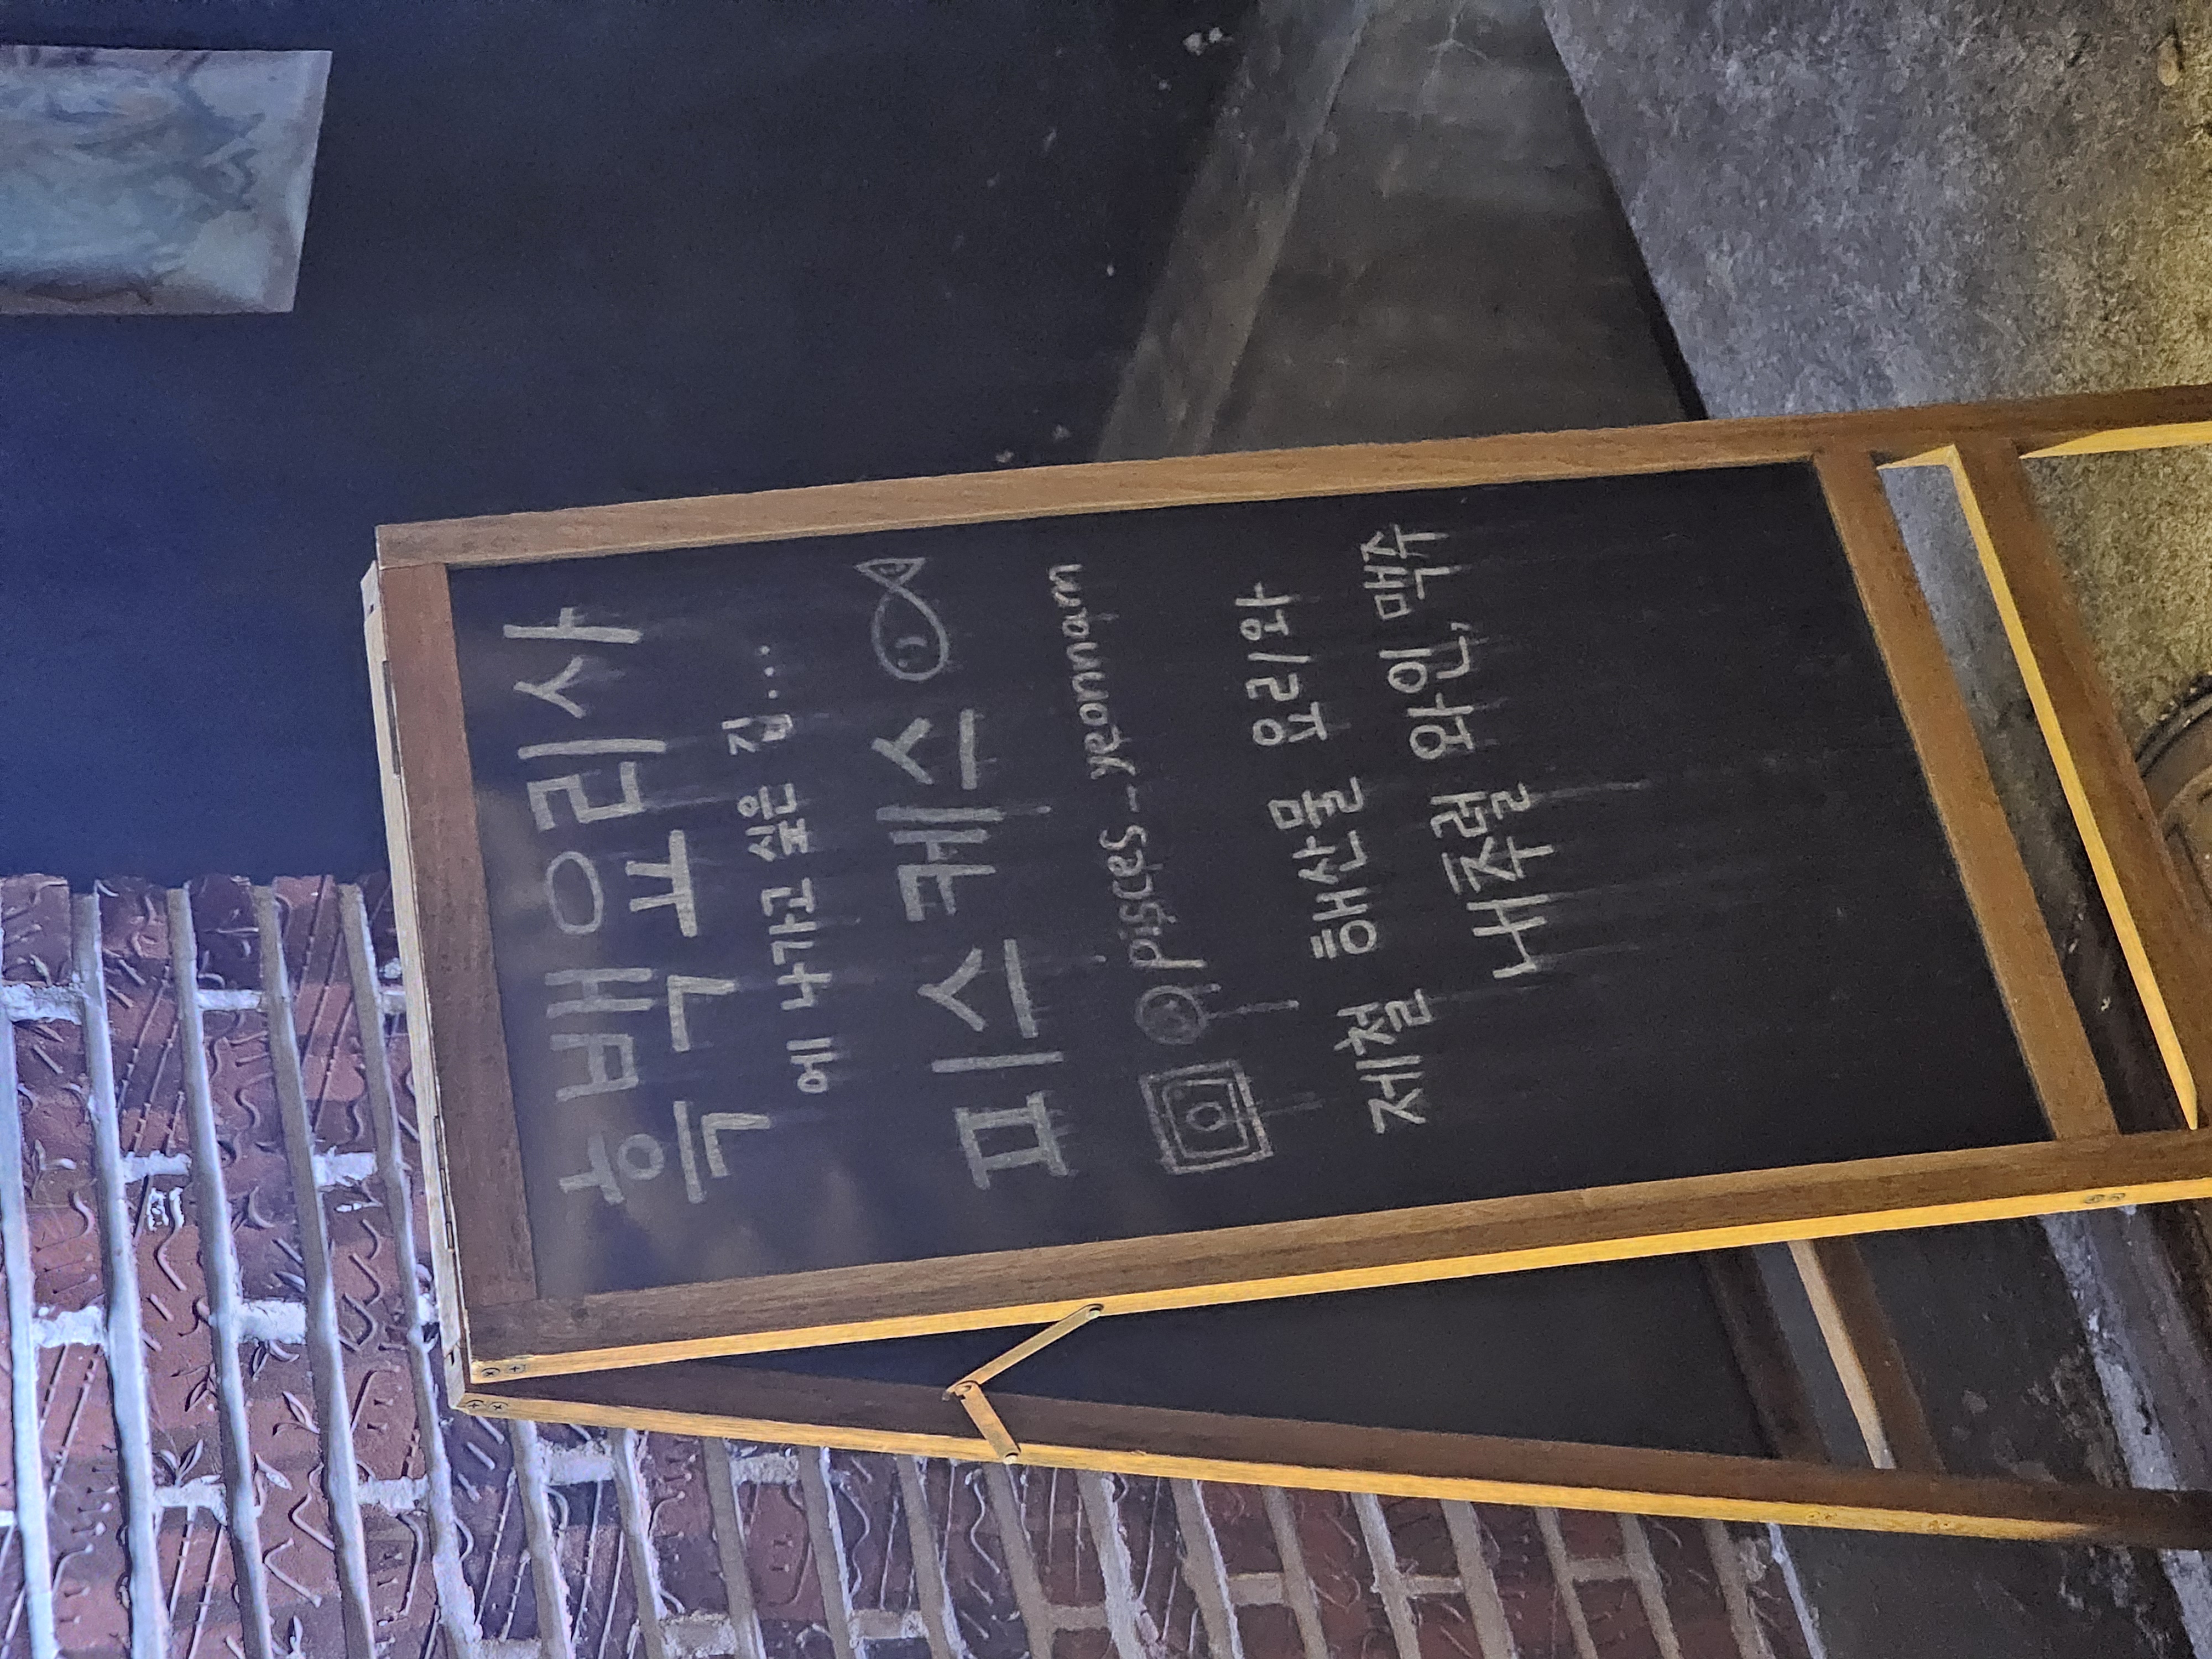 흑백요리사
에 나가고 싶은 집...
피스케스
@pisces_yeonnam
제철 해산물 요리와
내추럴 와인, 맥주